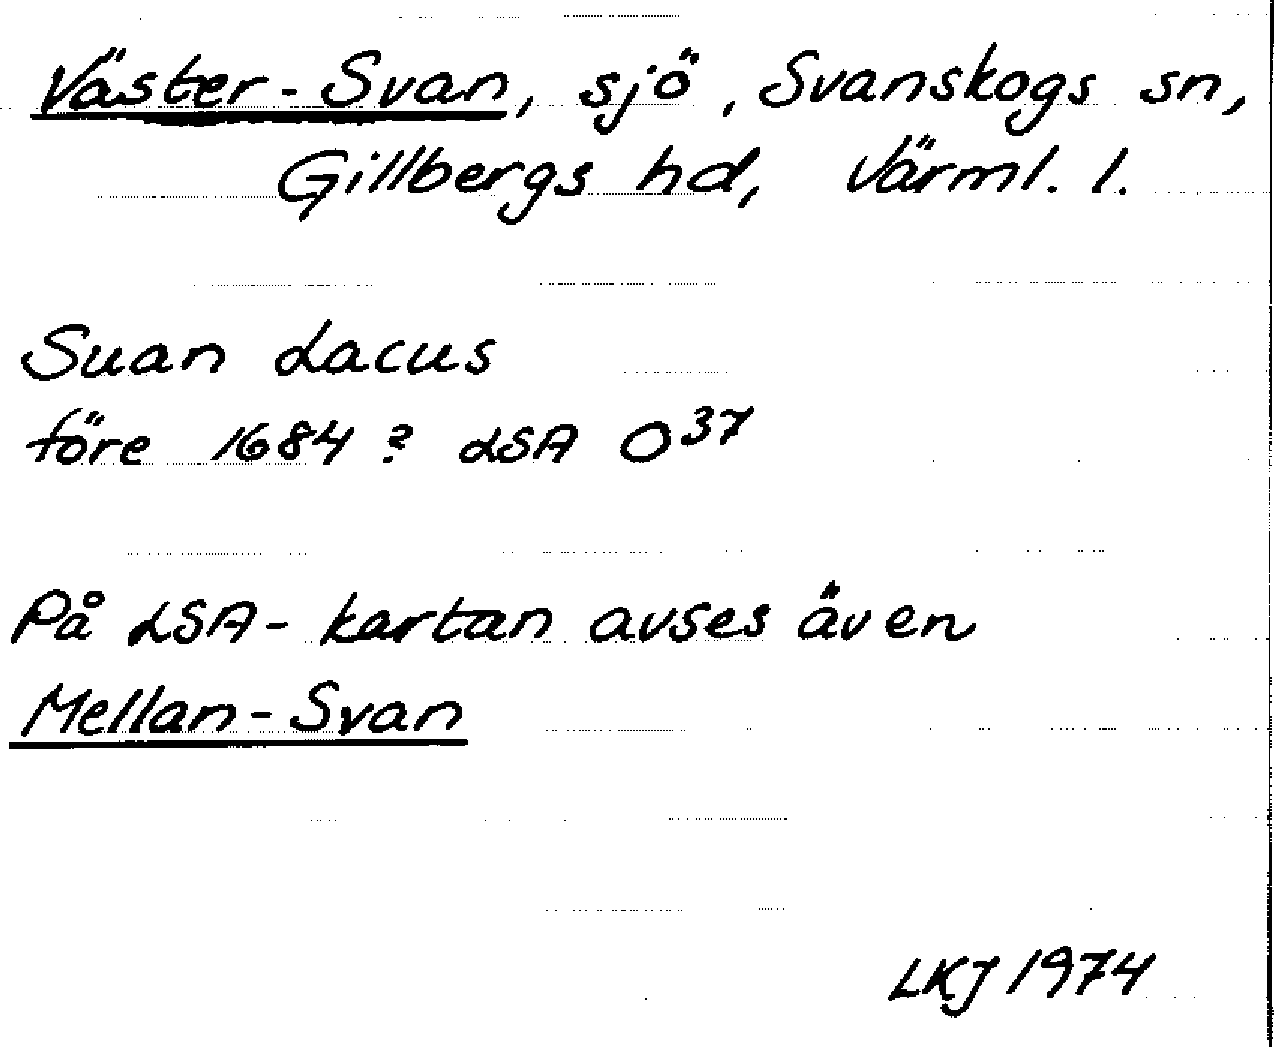 Väster-Svan, sjö, Svanskogs sn,
Gillbergs hd, Värml. l.
Suan Lacus
före 1684? LSA O37
På LSA-kartan avses även
Mellan-Svan
LKJ 1974